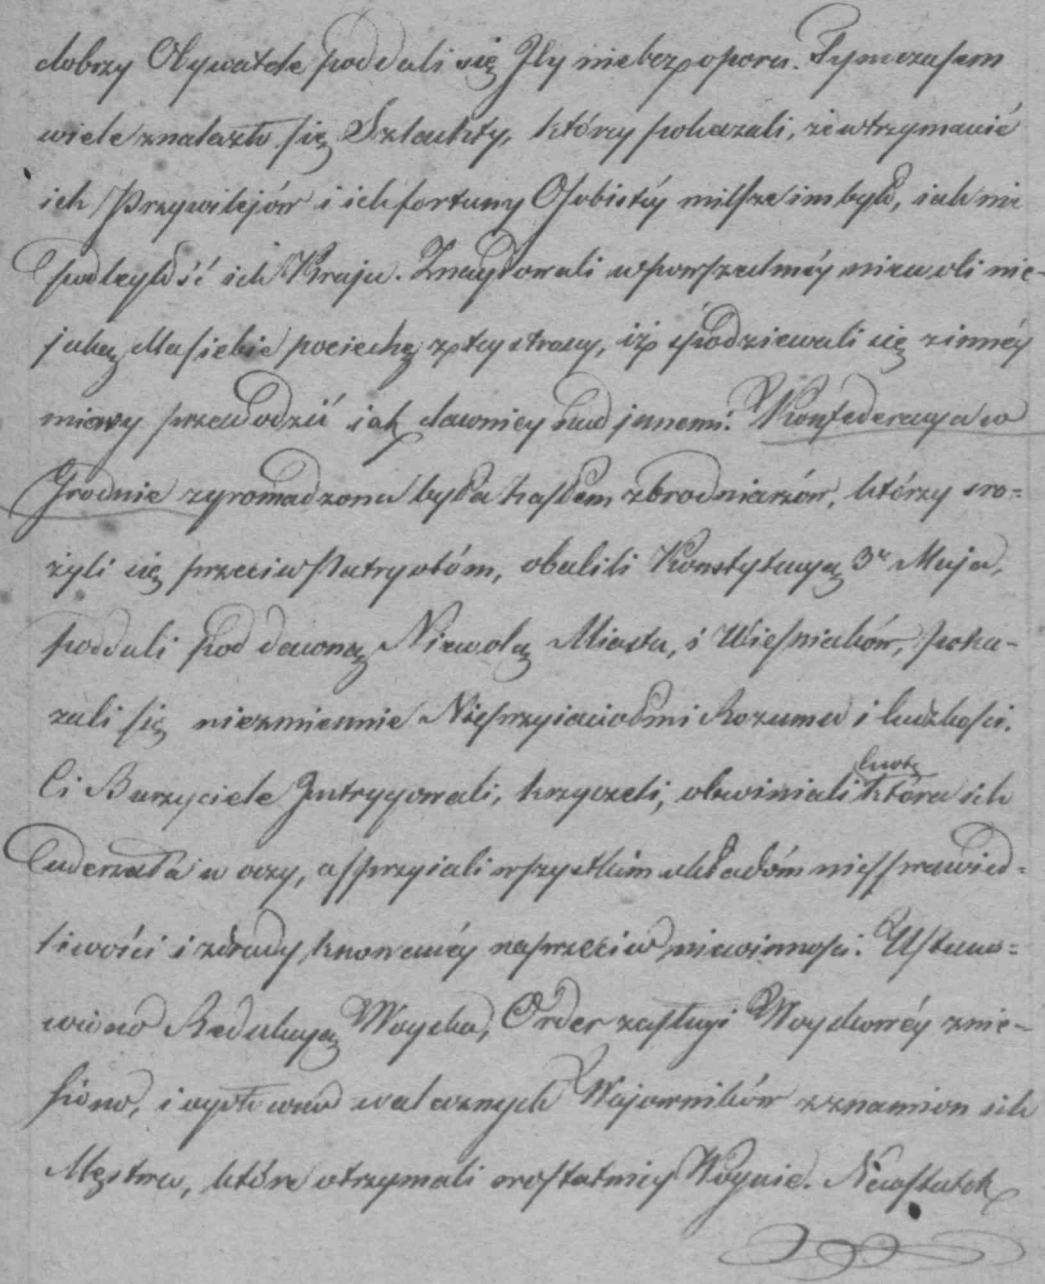 dobrzy Obywatele poddali się Jły niebez oporu. Tymczasem
wiele znalazło się Szlachty, którzy pokazali, że utrzymanie
ich Przywilejów i ich fortuny Osobistéy milsze im było, jak nie
podległość ich Kraju. Znaydowali w powszechnéy niewoli nie-
jaką dla siebie pociechę z téy strony, iż spodziewali się z innéy
miary przewodzić jak dawniey nad innemi. Konfederacya w
Grodnie zgromadzona była hasłem zbrodniarzów, którzy sro-
żyli się przeciw Patryotóm, obalili Konstytucyą 3o Maja,
poddali pod dawną Niewolą Miasta, i Wieśniaków, poka-
zali się niezmiennie Nieprzyiaciołmi Rozumu i ludzkości.
Ci Burzyciele Intrygowali, krzyczeli, obwiniali cnotę która ich
uderzała w oczy, a sprzyiali wszystkim układóm niesprawied-
liwości i zdrady knowanéy naprzeciw niewinności. Ustano-
wiono Redukcyą Woyska, Order zasługi Woyskowéy znie-
siono, i wyzuto walecznych Wojowników z znamion ich
Męstwa, które otrzymali w ostatniey Woynie. Na ostatek